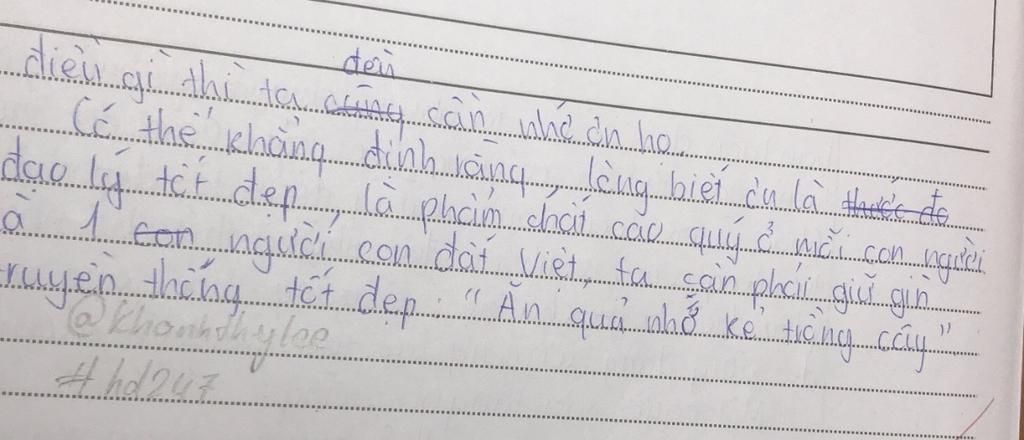 điều gì thì ta đều cần nhớ ơn họ.
Có thể khẳng định rằng, lòng biết ơn là
đạo lý tốt đẹp, là phẩm chất cao quý ở mỗi con người
à 1 người con đất Việt, ta cần phải giữ gìn
ruyền thống tốt đẹp "Ăn quả nhớ kẻ trồng cây"
@khanhdhylee
#hd247